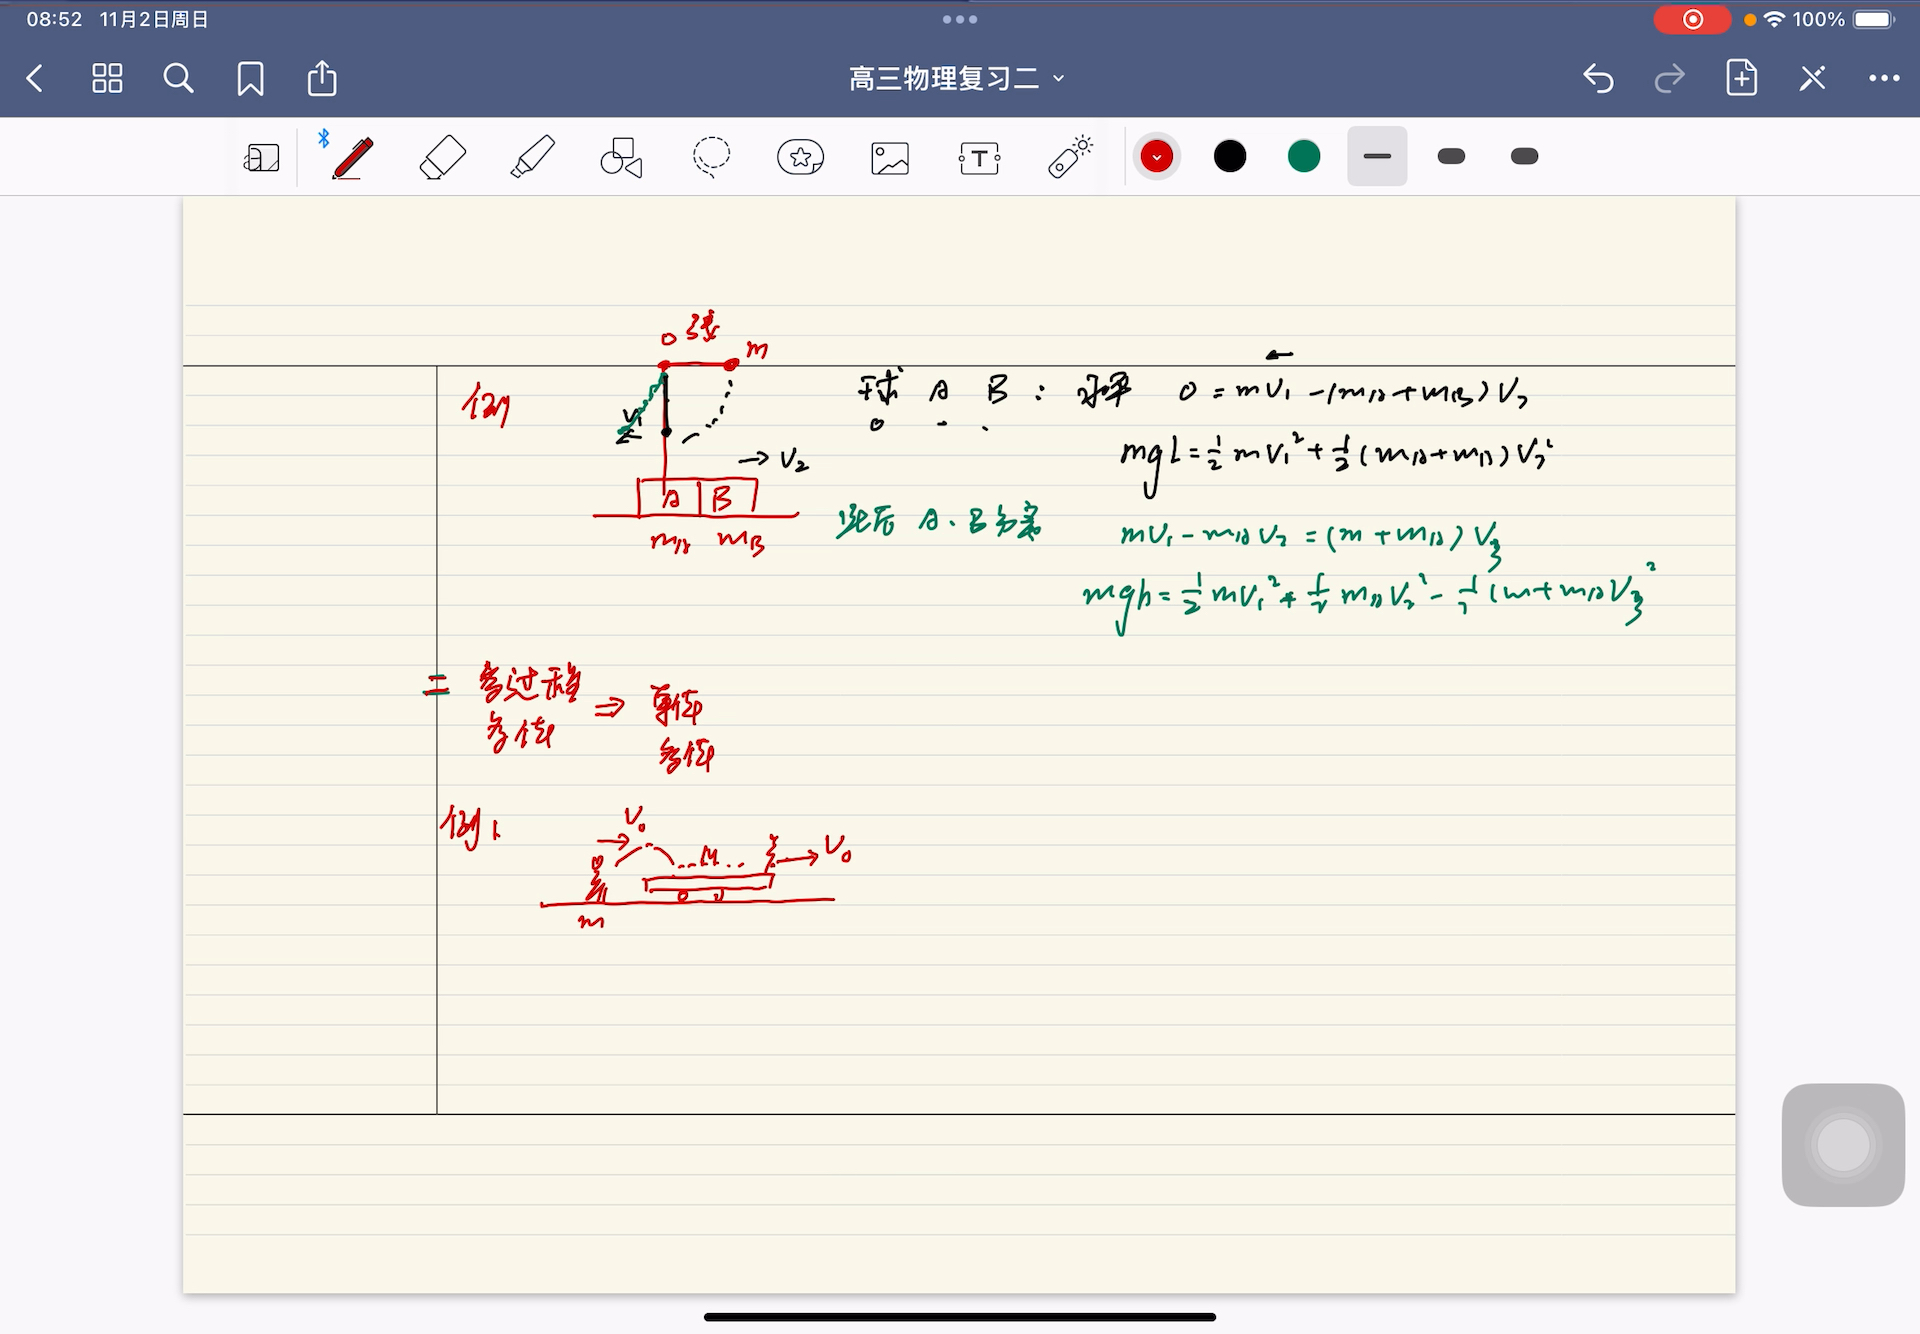 08:52 11月2日周日
100%
高三物理复习二
T
O
m
例
V₁
→V₂
A B
mA mB
球 A B : 水平 0 = mV₁ - (mA+mB)V₂
mgL = ½mV₁² + ½(mA+mB)V₂²
此后 A、B分离 mV₁ - mAV₂ = (m+mA)V₃
mgh = ½mV₁² + ½mAV₂² - ½(m+mA)V₃²
二 多过程 ⇒ 单体
多体 多体
例1
V₀
M
→V₀
m